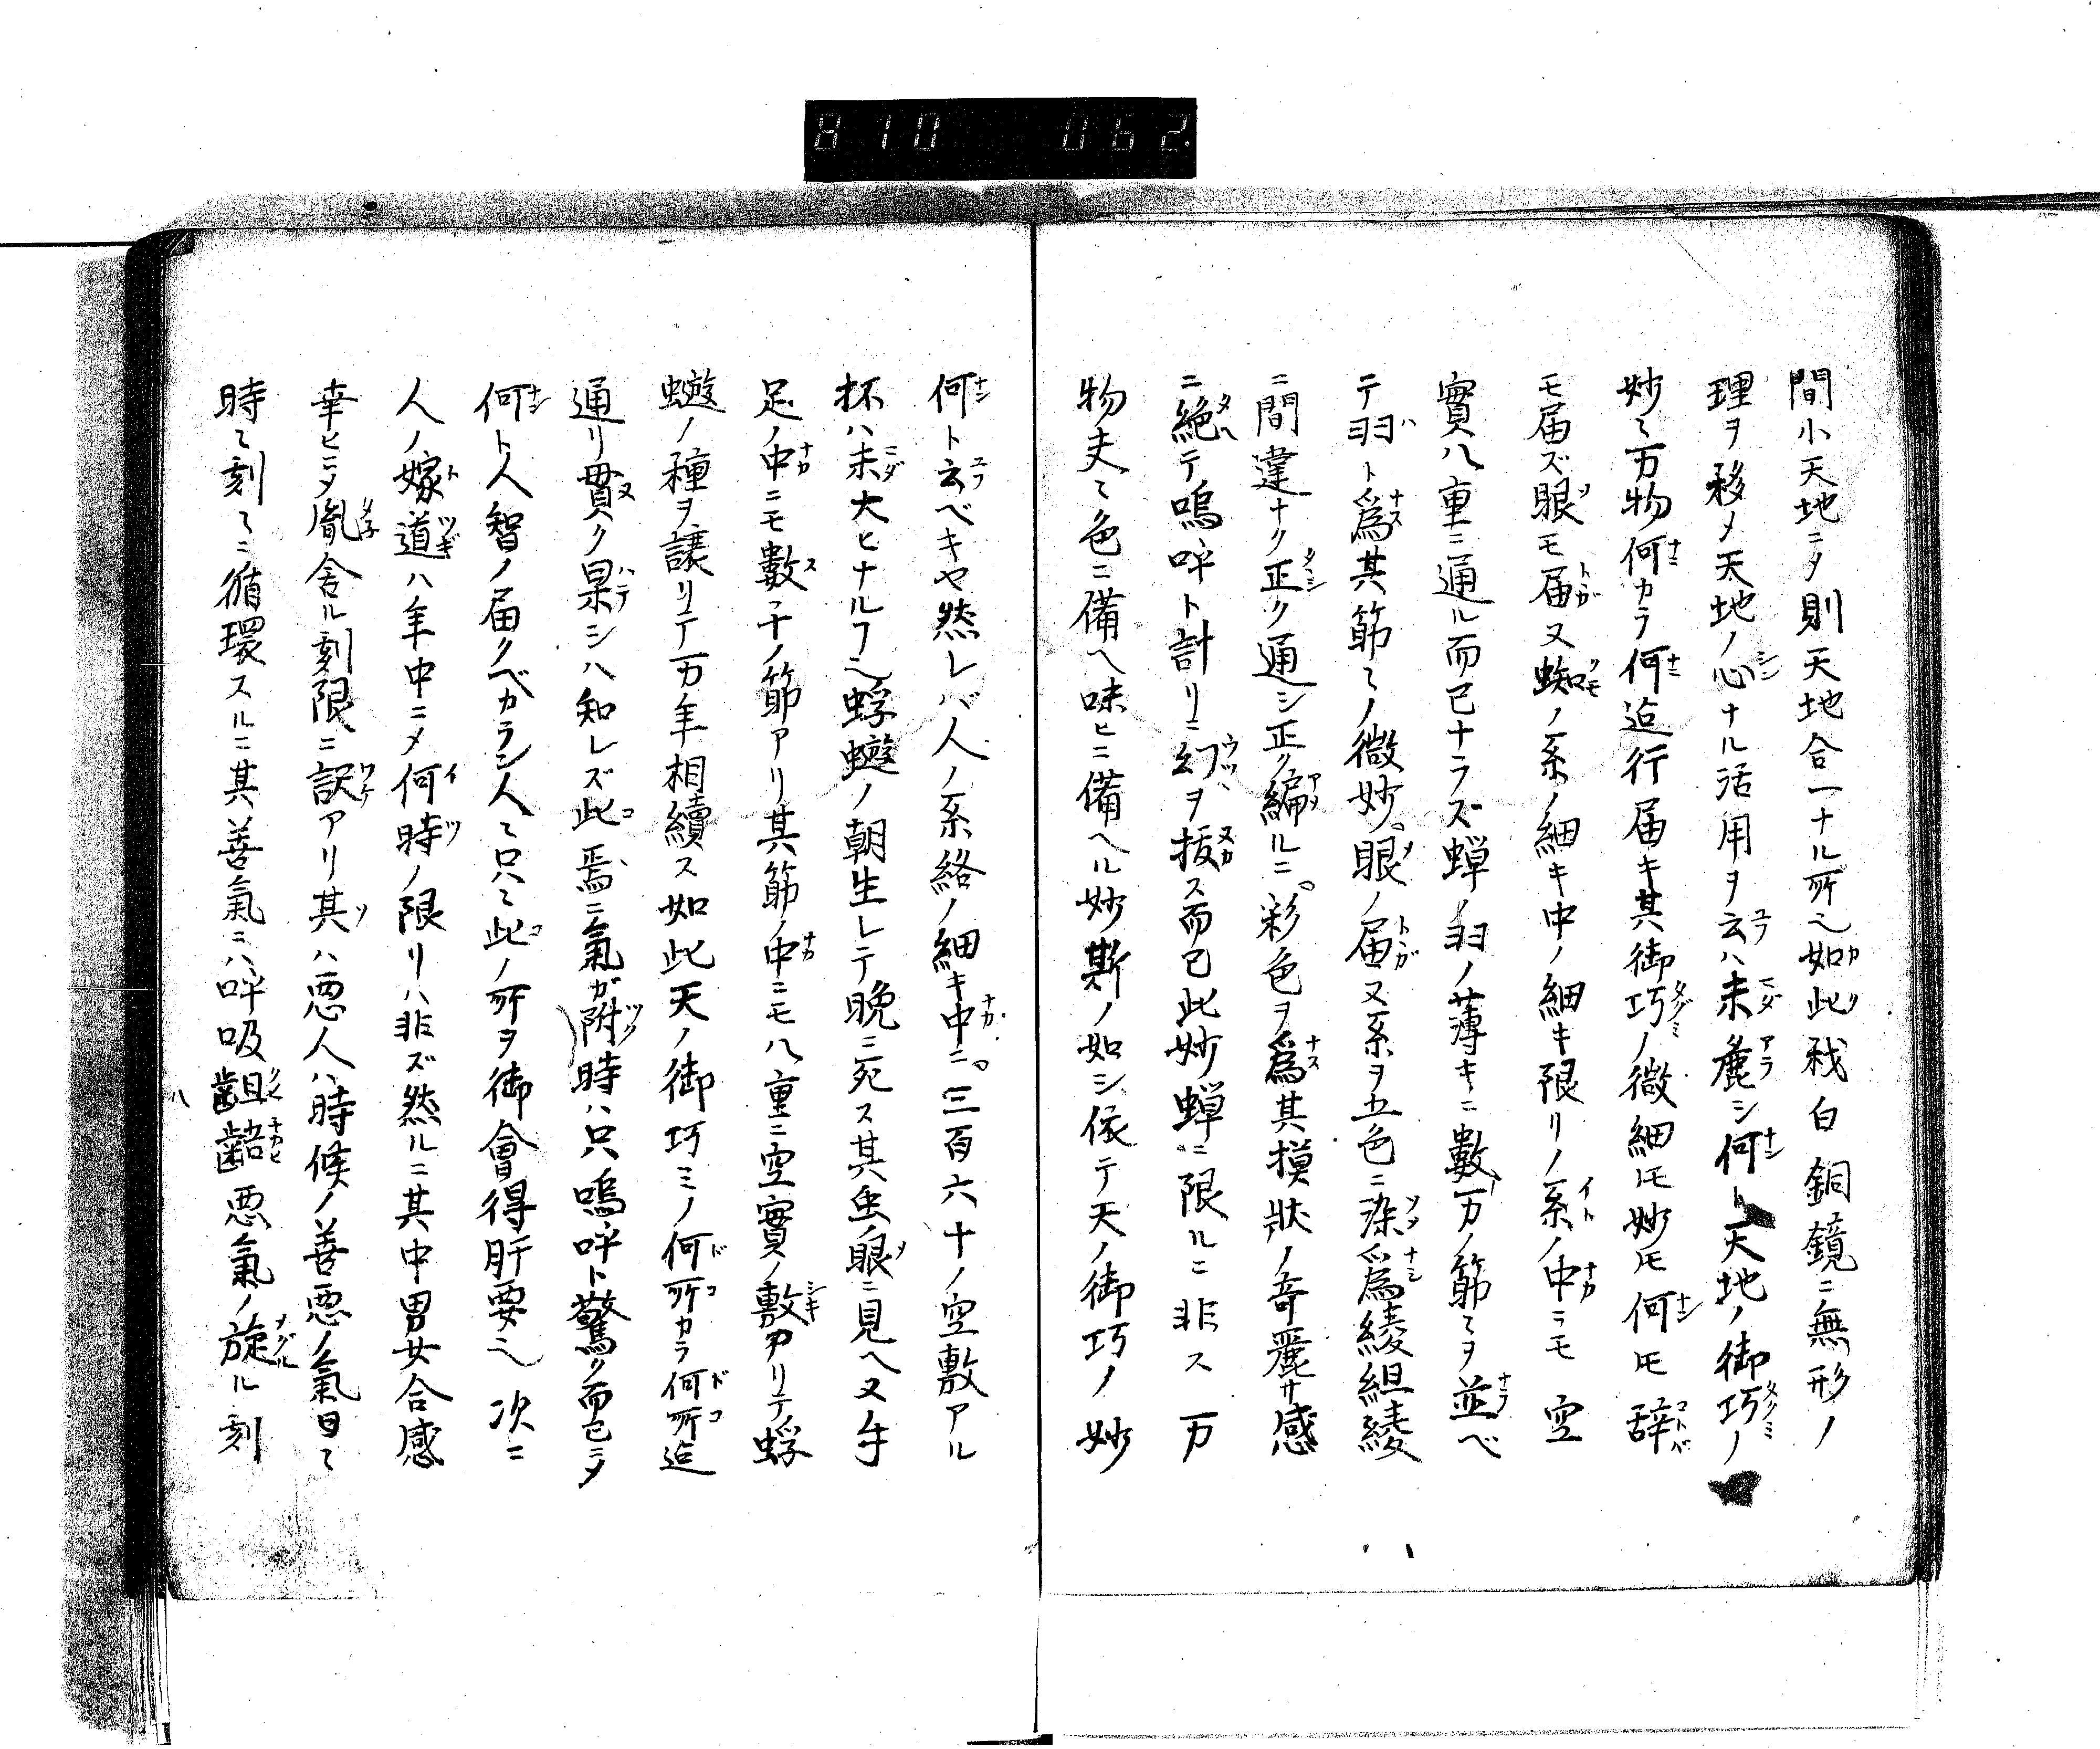 810 062.
間小天地ニメ則天地合一ナル所ヘ如此我白銅鏡ニ無形ノ
理ヲ移メ天地ノ心ナル活用ヲ云ハ未麁シ何ト天地ノ御巧ノ
妙〻万物何カラ何迠行届キ其御巧ノ微細モ妙モ何モ辞
モ届ズ眼モ届又蜘ノ糸ノ細キ中ノ細キ限リノ糸ノ中ニモ空
實八重ニ通ル而已ナラズ蝉ノ羽ノ薄キニ數万ノ節〻ヲ並ベ
テ羽ト爲其節〻ノ微妙眼ノ届ヌ糸ヲ五色ニ染爲綾組綾
ニ間違ナク正ク通シ正ク編ルニ彩色ヲ爲其摸狀ノ奇麗サ感
ニ絶テ嗚呼ト計リニ幻ヲ抜ス而已此妙蝉ニ限ルニ非ス万
物夫〻色ニ備ヘ味ヒニ備ヘル妙斯ノ如シ依テ天ノ御巧ノ妙
何ト云ベキヤ然レバ人ノ糸絡ノ細キ中ニ三百六十ノ空敷アル
抔ハ未大ヒナルヿヘ蜉蝣ノ朝生レテ晩ニ死ス其虫ノ眼ニ見ヘヌ手
足ノ中ニモ數千ノ節アリ其節ノ中ニモ八重ニ空實ノ敷アリテ蜉
蝣ノ種ヲ譲リテ万年相續ス如此天ノ御巧ミノ何所カラ何所迠
通リ貫ク果シハ知レズ此焉ニ氣ガ附時ハ只嗚呼ト驚ク而已ニメ
何ト人智ノ届クベカラン人〻只〻此ノ所ヲ御會得肝要ヘ次ニ
人ノ嫁道ハ年中ニメ何時ノ限リハ非ズ然ルニ其中男女合感
幸ヒニメ胤舎ル刻限ニ訳アリ其ハ悪人ハ時候ノ善悪ノ氣日〻
時〻刻〻ニ循環スルニ其善氣ニハ呼吸齟齬悪氣ノ旋ル刻